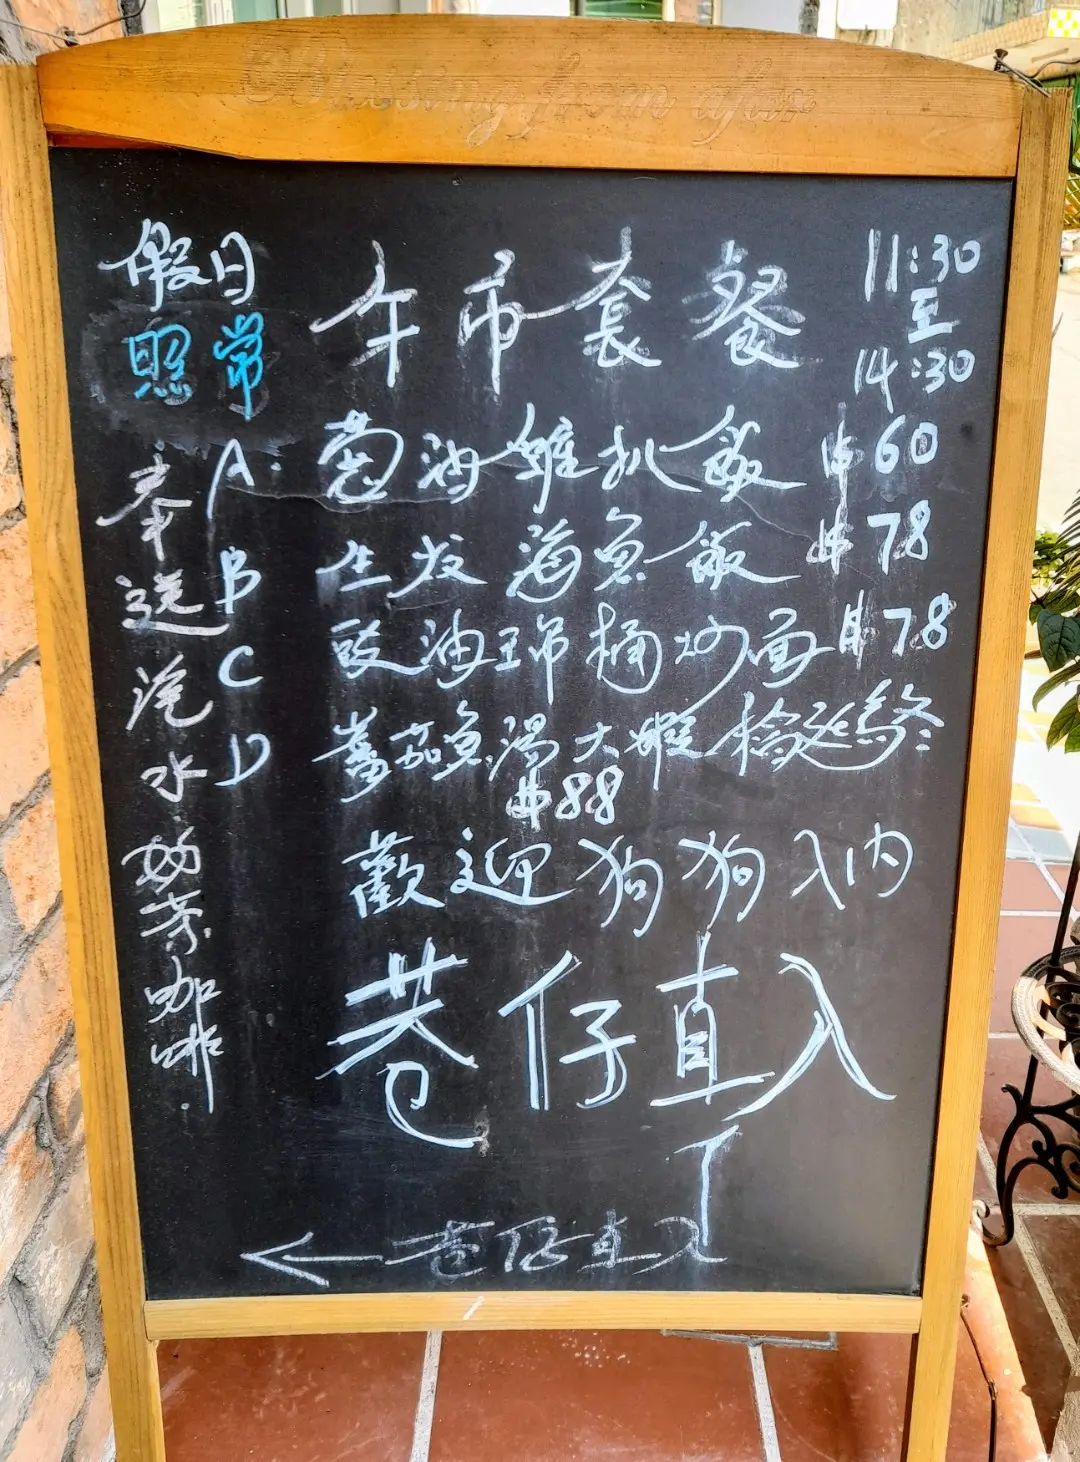 Blessing from afar
假日
照常
午市套餐
11:30
至
14:30
A. 葱油雞扒飯 $60
B 生 海魚飯 $78
C 豉油王 桶炒面 $78
D 蕃茄魚湯大蝦
$88
歡迎狗狗入內
巷仔直入
奉送汽水奶茶咖啡
← 巷仔直入